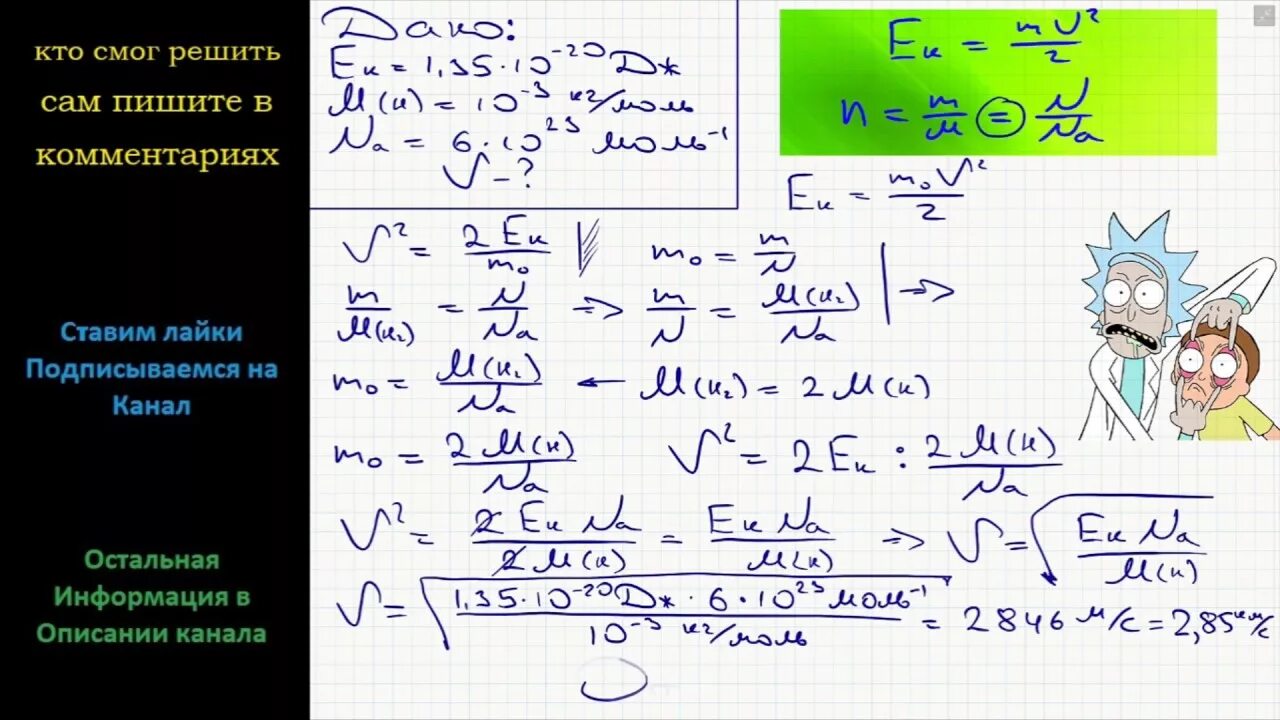 кто смог решить
сам пишите в
комментариях
Ставим лайки
Подписываемся на
Канал
Остальная
Информация в
Описании канала
Дано:
Eк = 1,35·10⁻²⁰ Дж
M(н) = 10⁻³ кг/моль
Na = 6·10²³ моль⁻¹
V - ?
Eк = mV²/2
n = m/M = N/Na
Eк = m₀V²/2
V² = 2Eк/m₀
m₀ = m/N
m/M(н₂) = N/Na => m/N = M(н₂)/Na | =>
m₀ = M(н₂)/Na ← M(н₂) = 2M(н)
m₀ = 2M(н)/Na
V² = 2Eк : 2M(н)/Na
V² = 2EкNa/2M(н) = EкNa/M(н) => V = √(EкNa/M(н))
V = √(1,35·10⁻²⁰Дж·6·10²³моль⁻¹/10⁻³ кг/моль) = 2846 м/с = 2,85 км/с